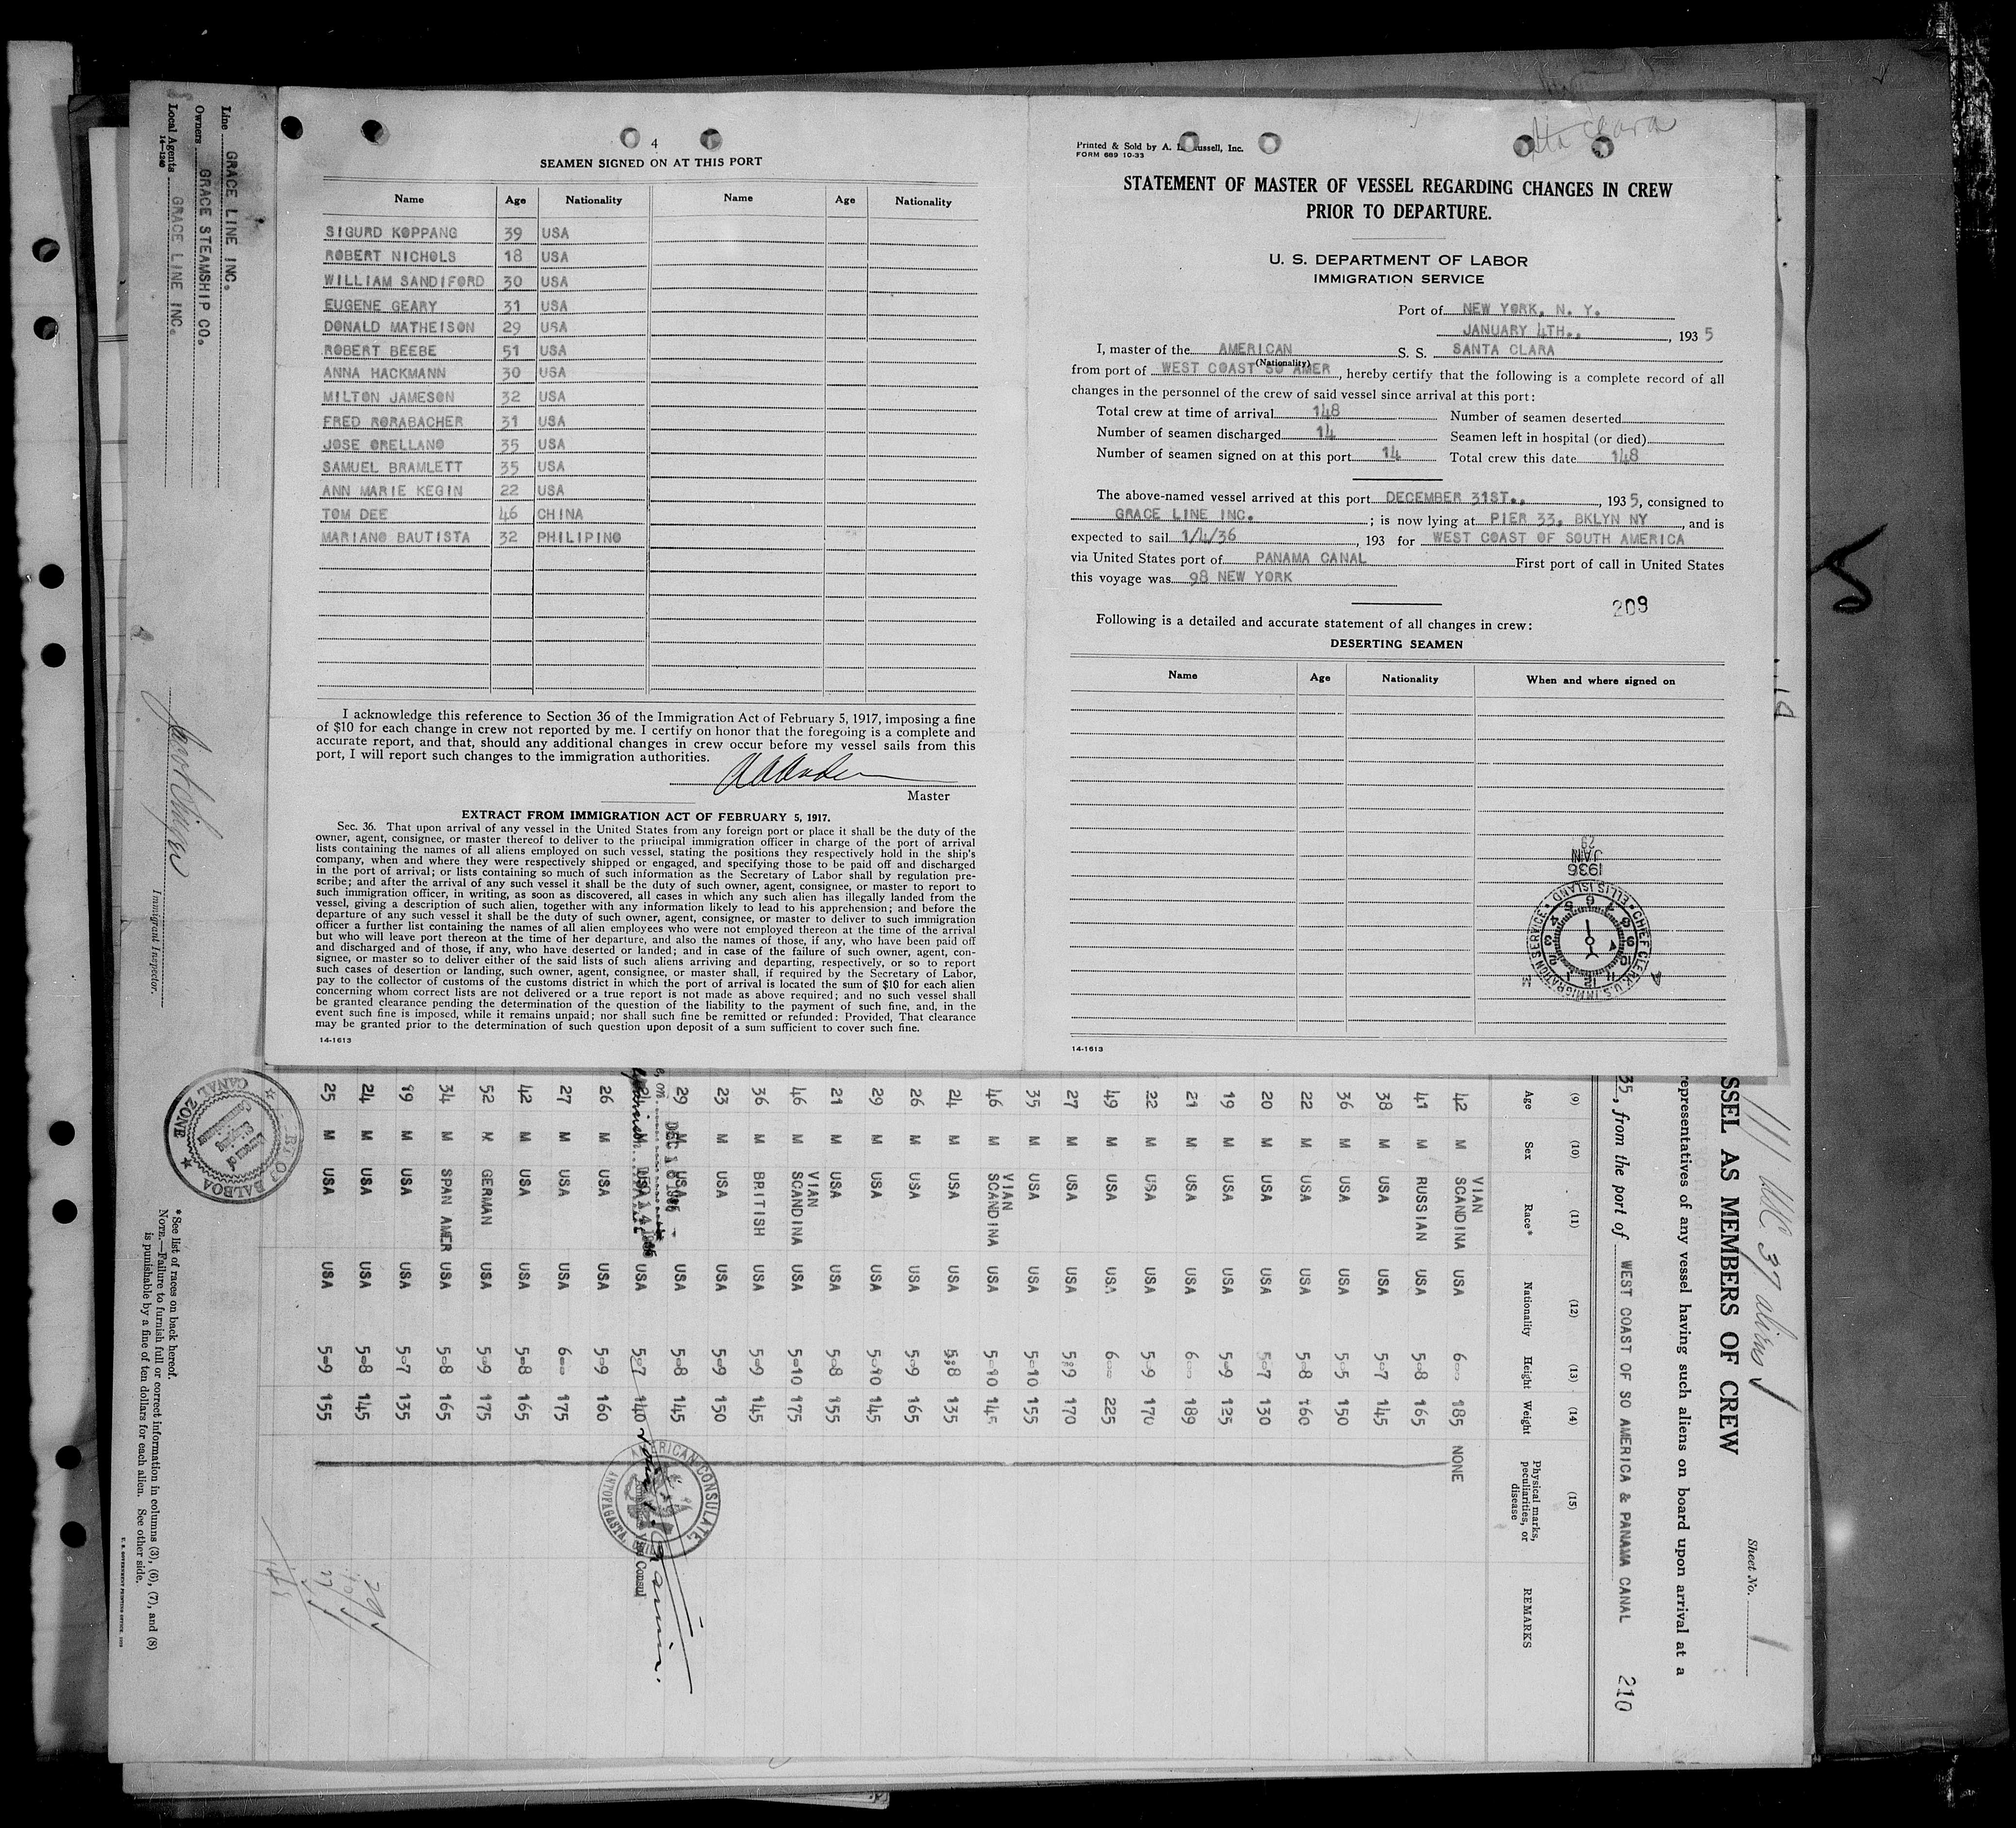 4
SEAMEN SIGNED ON AT THIS PORT
Name Age Nationality Name Age Nationality
SIGURD KOPPANG 39 USA
ROBERT NICHOLS 18 USA
WILLIAM SANDIFORD 30 USA
EUGENE GEARY 31 USA
DONALD MATHEISON 29 USA
ROBERT BEEBE 51 USA
ANNA HACKMANN 30 USA
MILTON JAMESON 32 USA
FRED RORABACHER 31 USA
JOSE ORELLANO 35 USA
SAMUEL BRAMLETT 35 USA
ANN MARIE KEGIN 22 USA
TOM DEE 46 CHINA
MARIANO BAUTISTA 32 PHILIPINO
I acknowledge this reference to Section 36 of the Immigration Act of February 5, 1917, imposing a fine
of $10 for each change in crew not reported by me. I certify on honor that the foregoing is a complete and
accurate report, and that, should any additional changes in crew occur before my vessel sails from this
port, I will report such changes to the immigration authorities.
Master
EXTRACT FROM IMMIGRATION ACT OF FEBRUARY 5, 1917.
Sec. 36. That upon arrival of any vessel in the United States from any foreign port or place it shall be the duty of the
owner, agent, consignee, or master thereof to deliver to the principal immigration officer in charge of the port of arrival
lists containing the names of all aliens employed on such vessel, stating the positions they respectively hold in the ship's
company, when and where they were respectively shipped or engaged, and specifying those to be paid off and discharged
in the port of arrival; or lists containing so much of such information as the Secretary of Labor shall by regulation pre-
scribe; and after the arrival of any such vessel it shall be the duty of such owner, agent, consignee, or master to report to
such immigration officer, in writing, as soon as discovered, all cases in which any such alien has illegally landed from the
vessel, giving a description of such alien, together with any information likely to lead to his apprehension; and before the
departure of any such vessel it shall be the duty of such owner, agent, consignee, or master to deliver to such immigration
officer a further list containing the names of all alien employees who were not employed thereon at the time of the arrival
but who will leave port thereon at the time of her departure, and also the names of those, if any, who have been paid off
and discharged and of those, if any, who have deserted or landed; and in case of the failure of such owner, agent, con-
signee, or master so to deliver either of the said lists of such aliens arriving and departing, respectively, or so to report
such cases of desertion or landing, such owner, agent, consignee, or master shall, if required by the Secretary of Labor,
pay to the collector of customs of the customs district in which the port of arrival is located the sum of $10 for each alien
concerning whom correct lists are not delivered or a true report is not made as above required; and no such vessel shall
be granted clearance pending the determination of the question of the liability to the payment of such fine, and, in the
event such fine is imposed, while it remains unpaid; nor shall such fine be remitted or refunded: Provided, That clearance
may be granted prior to the determination of such question upon deposit of a sum sufficient to cover such fine.
14-1613
Sta Clara
Printed & Sold by A. L. Russell, Inc.
FORM 689 10-33
STATEMENT OF MASTER OF VESSEL REGARDING CHANGES IN CREW
PRIOR TO DEPARTURE.
U. S. DEPARTMENT OF LABOR
IMMIGRATION SERVICE
Port of NEW YORK, N. Y.
JANUARY 4TH., , 193 5
I, master of the AMERICAN S. S. SANTA CLARA
(Nationality)
from port of WEST COAST SO AMER , hereby certify that the following is a complete record of all
changes in the personnel of the crew of said vessel since arrival at this port:
Total crew at time of arrival 148 Number of seamen deserted
Number of seamen discharged 14 Seamen left in hospital (or died)
Number of seamen signed on at this port 14 Total crew this date 148
The above-named vessel arrived at this port DECEMBER 31ST., , 193 5, consigned to
GRACE LINE INC. ; is now lying at PIER 33, BKLYN NY , and is
expected to sail 1/4/36 , 193 for WEST COAST OF SOUTH AMERICA
via United States port of PANAMA CANAL First port of call in United States
this voyage was 98 NEW YORK
209
Following is a detailed and accurate statement of all changes in crew:
DESERTING SEAMEN
Name Age Nationality When and where signed on
1936
JAN
29
CHIEF CLERK, U.S. IMMIGRATION SERVICE • ELLIS ISLAND •
14-1613
111 USC 37 aliens
Sheet No. 1
SSEL AS MEMBERS OF CREW
representatives of any vessel having such aliens on board upon arrival at a
35, from the port of WEST COAST OF SO AMERICA & PANAMA CANAL 210
(9) (10) (11) (12) (13) (14) (15)
Age Sex Race* Nationality Height Weight Physical marks, peculiarities, or disease REMARKS
42 M SCANDINAVIAN USA 6-0 185 NONE
41 M RUSSIAN USA 5-8 165
38 M USA USA 5-7 145
36 M USA USA 5-5 150
22 M USA USA 5-8 160
20 M USA USA 5-7 130
19 M USA USA 5-9 125
21 M USA USA 6-0 189
22 M USA USA 5-9 170
49 M USA USA 6-0 225
27 M USA USA 5-9 170
35 M USA USA 5-10 155
46 M SCANDINAVIAN USA 5-10 145
24 M USA USA 5-8 135
26 M USA USA 5-9 165
29 M USA USA 5-10 145
21 M USA USA 5-8 155
46 M SCANDINAVIAN USA 5-10 175
36 M BRITISH USA 5-9 145
23 M USA USA 5-9 150
29 M USA USA 5-8 145
24 M USA USA 5-7 140
26 M USA USA 5-9 160
27 M USA USA 6-0 175
42 M USA USA 5-8 165
52 M GERMAN USA 5-9 175
34 M SPAN AMER USA 5-8 165
19 M USA USA 5-7 135
24 M USA USA 5-8 145
25 M USA USA 5-9 155
AMERICAN CONSULATE,
ANTOFAGASTA, CHILE
Vice Consul
PORT OF BALBOA
CANAL ZONE
Line GRACE LINE INC.
Owners GRACE STEAMSHIP CO.
Local Agents GRACE LINE INC.
14-1240
Immigrant Inspector.
*See list of races on back hereof.
NOTE.—Failure to furnish full or correct information in columns (3), (6), (7), and (8)
is punishable by a fine of ten dollars for each alien. See other side.
U. S. GOVERNMENT PRINTING OFFICE